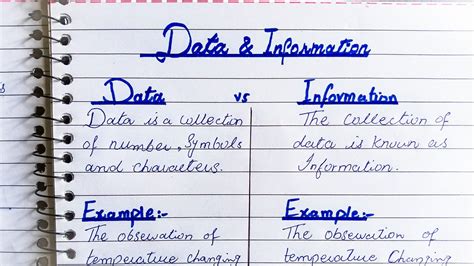 Data & Information
Data vs Information
Data is a collection
of number, Symbols
and characters.
The collection of
data is known as
Information.
Example:-
The obserwation of
temperature changing
Example:-
The obserwation of
temperature Changing